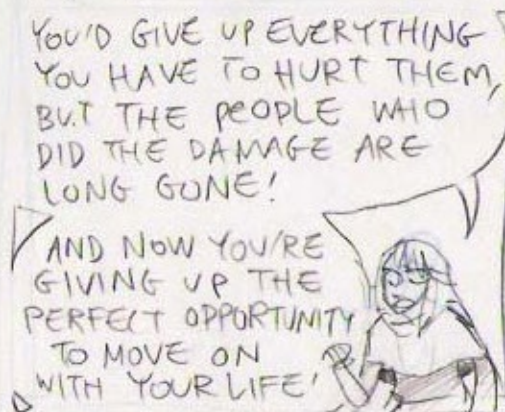 YOU'D GIVE UP EVERYTHING
YOU HAVE TO HURT THEM,
BUT THE PEOPLE WHO
DID THE DAMAGE ARE
LONG GONE!
AND NOW YOU'RE
GIVING UP THE
PERFECT OPPORTUNITY
TO MOVE ON
WITH YOUR LIFE!